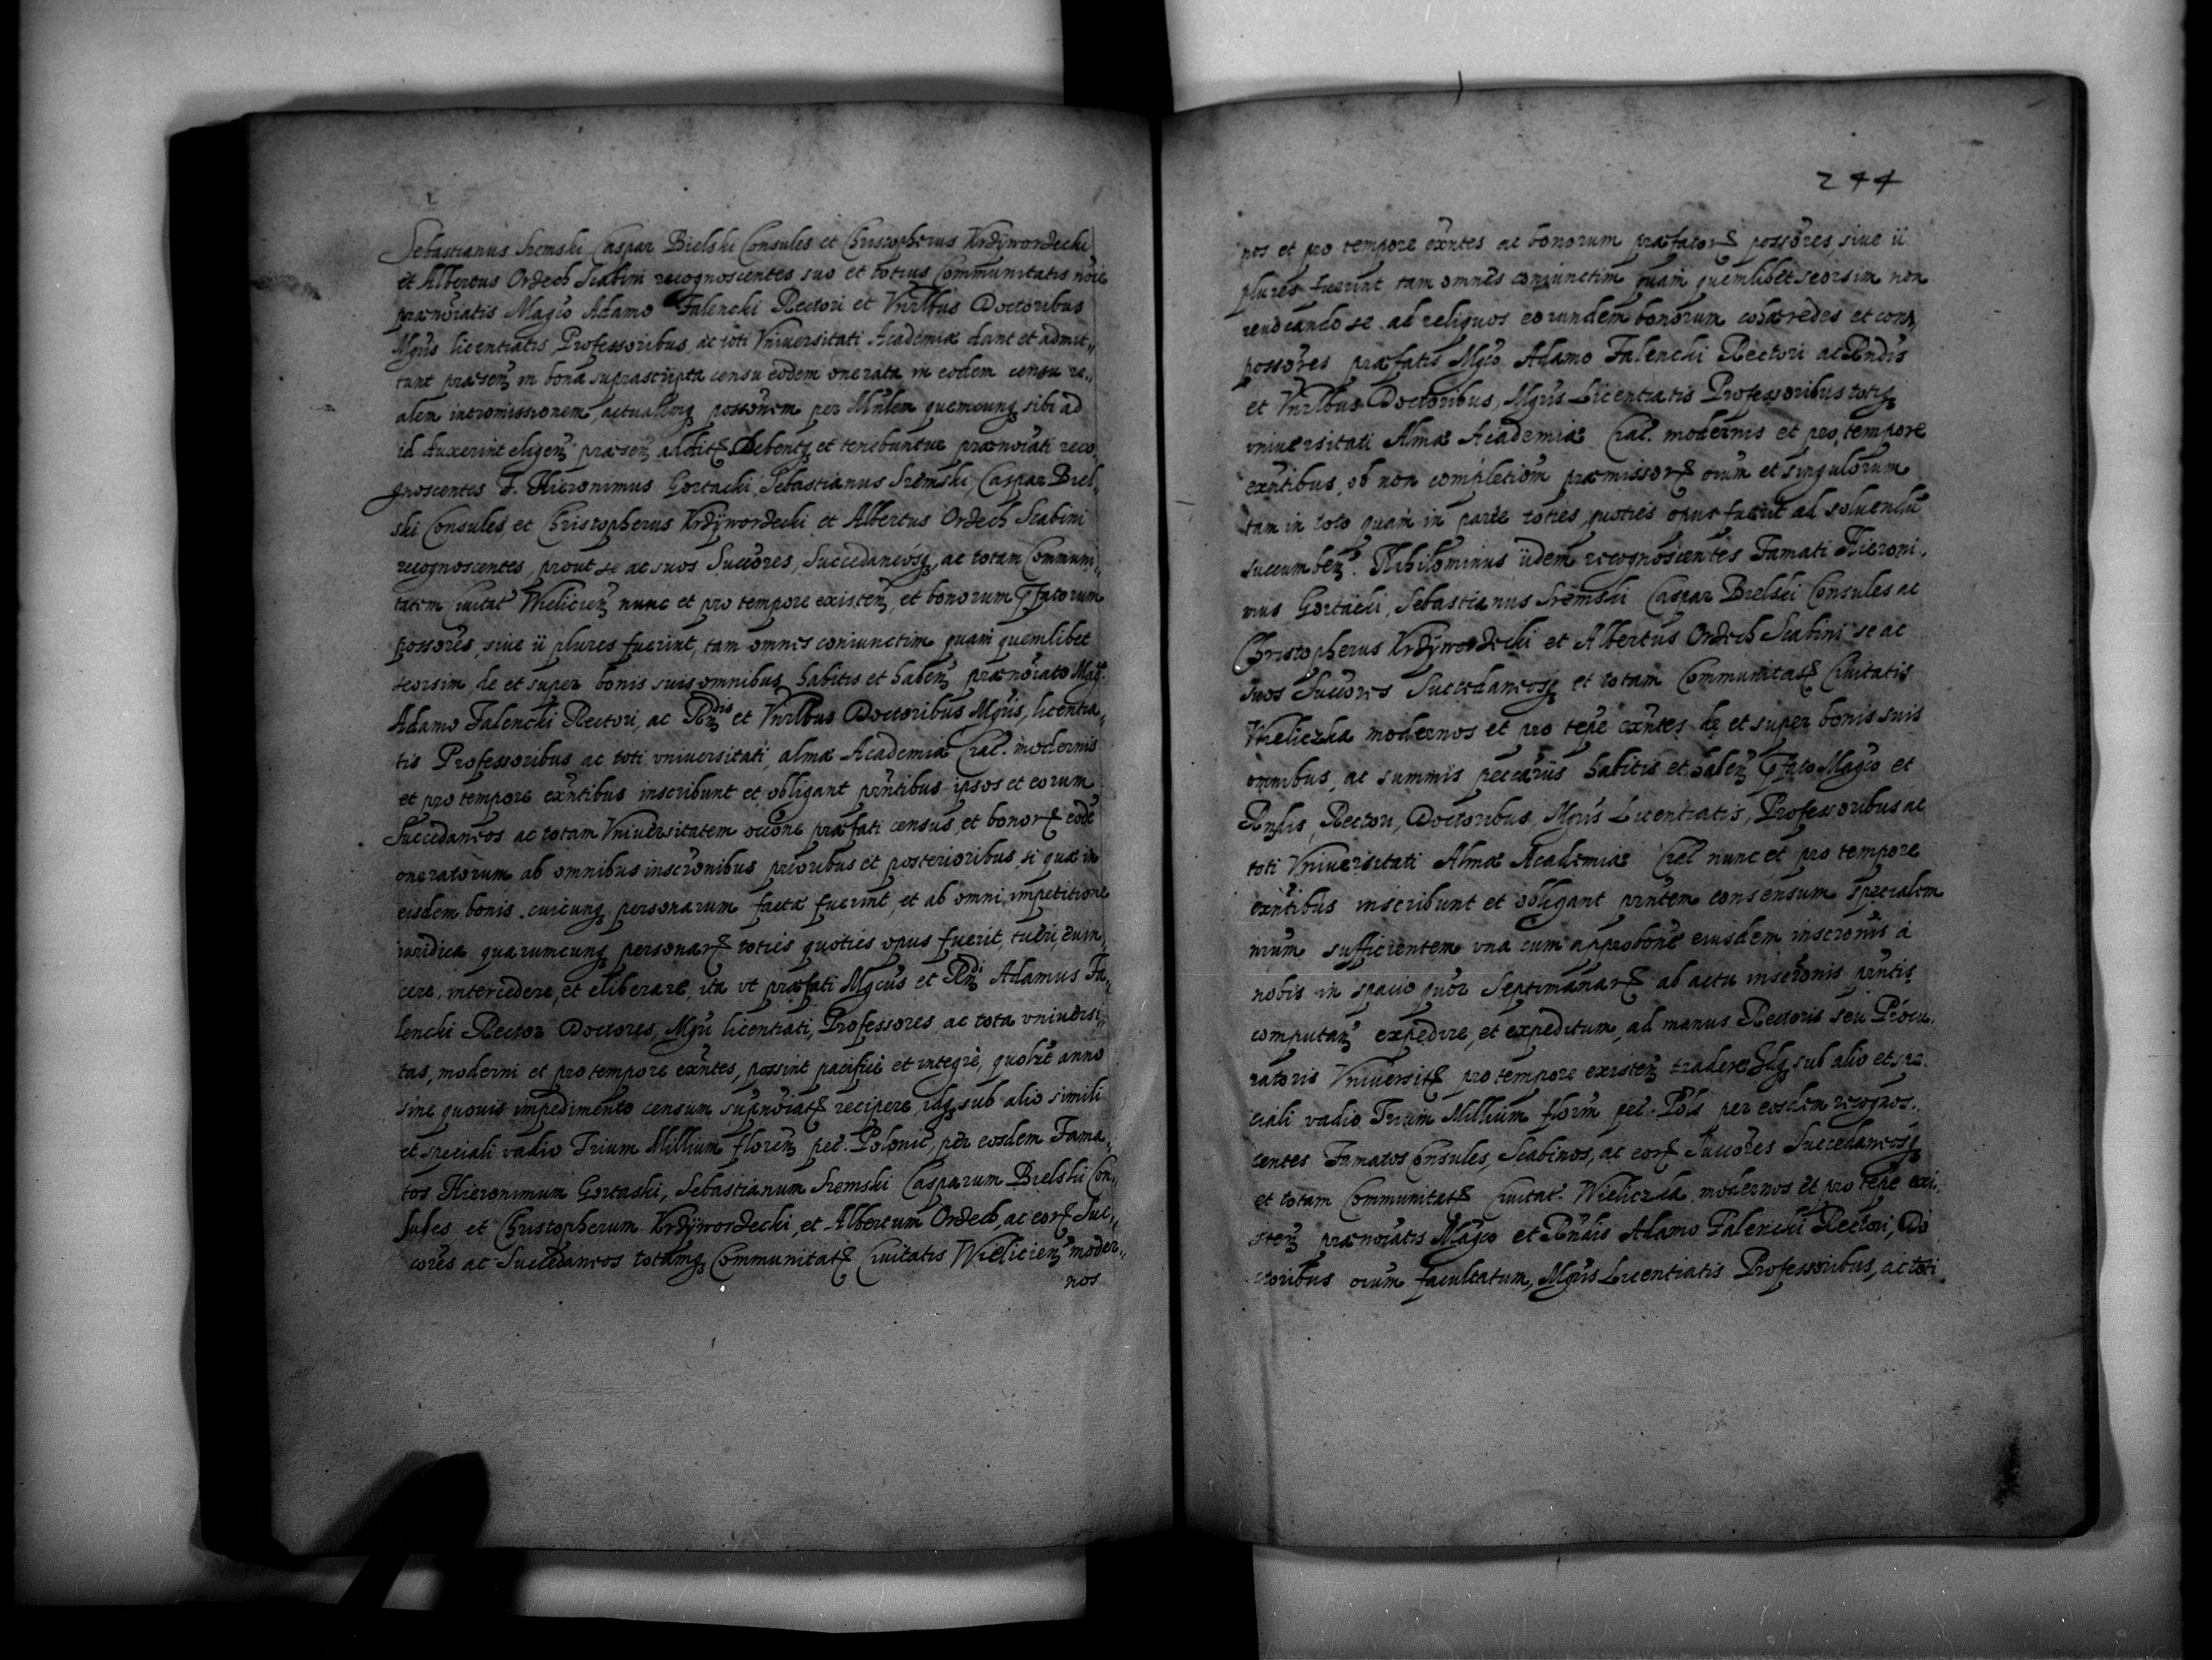 Sebastianus Sremski Caspar Bielski Consules et Christopherus Krzÿwordecki
et Albertus Ordech Scabini recognoscentes suo et totius Communitatis nõie
prænoiatis Magco Adamo Falencki Rectori et Vnrlbus Doctoribus
Mgris licentiatis Professoribus ac toti Vniuersitati Academiæ dant et admit„
tunt præsen in bona suprascripta censu eodem onerata in eodem censu re„
alem intromissionem, actualemq possonem per Mnlem quemcunq sibi ad
id duxerint eligen præsen addit Debentq et tenebuntur prænoiati reco
gnoscentes F. Hieronimus Gortacki, Sebastianus Sremski, Caspar Biel„
ski Consules, et Christopherus Krzÿwordecki et Albertus Ordech Scabini
recognoscentes, prout se ac suos Succores, Succedaneosq, ac totam Communi„
tatem Ciuitat Wielicien nunc et pro tempore existen, et bonorum pfatorum
possores, siue ii plures fuerint, tam omnes coniunctim quam quemlibet
seorsim de et super bonis suis omnibus habitis et haben prænoiato Magco
Adamo Falencki Rectori, ac Rndis et Vnrlbus Doctoribus Mgris, licentia„
tis Professoribus ac toti vniuersitati, almæ Academiæ Crac. modernis
et pro tempore exntibus inscribunt et obligant prntibus ipsos et eorum
Succedaneos ac totam Vniuersitatem occone præfati census, et bonor eode
oneratorum ab omnibus inscronibus prioribus et posterioribus, si quæ in
eisdem bonis cuicunq personarum factæ fuerint, et ab omni impetitione
iuridica quarumcunq personar toties quoties opus fuerit, tueri, euin„
cere, intercedere, et eliberare, ita vt præfati Mgcus et Rndi Adamus Fa„
lencki Rector Doctores, Mgri licentiati, Professores ac tota vniuersi„
tas, moderni et pro tempore exntes, possint pacificè et integrè, quolzt anno
sine quouis impedimento censum supnoiat recipere, idq sub alio simili
et speciali vadio Trium Millium floren pec. Polonic, per eosdem Fama„
tos Hieronimum Gortaski, Sebastianum Sremski Casparum Bielski Con„
sules et Christopherum Krzÿwordecki, et Albertum Ordech, ac eor Suc„
cores ac Succedaneos totamq Communitat Ciuitatis Wielicien moder„
nos
244
nos et pro tempore exntes ac bonorum præfator possores, siue ii
plures fuerint tam omnes coniunctim quam quemlibet seorsim non
reuocando se ad reliquos eorundem bonorum cohæredes et com
possores præfatis Mgco Adamo Falencki Rectori ac Rndis
et Vnrlbus Doctoribus, Mgris Licentiatis Professoribus totiq
vniuersitati Almæ Academiæ Crac. modernis et pro tempore
exntibus, ob non completiom præmissor oium et singulorum
tam in toto quam in parte toties quoties opus fuerit ad soluendu
succumben. Nihilominus iidem recognoscentes Famati Hieroni„
mus Gortacki, Sebastianus Sremski Caspar Bielski Consules ac
Christopherus Krzÿwordecki et Albertus Ordech Scabini se ac
suos Succores Succedaneosq et totam Communitat Ciuitatis
Wieliczka modernos et pro tepe exntes de et super bonis suis
omnibus, ac summis pecariis habitis et haben pfato Magco et
Rndis, Rectori, Doctoribus, Mgris Licentiatis, Professoribus ac
toti Vniuersitati Almæ Academiæ Crac nunc et pro tempore
exntibus inscribunt et obligant prntem consensum specialem
sufficientem vna cum approbone eiusdem inscronis à
nobis in spacio quor Septimanar ab actu inscronis prntis
computan expedire, et expeditum, ad manus Rectoris seu Procu„
ratoris Vniuersit pro tempore existen tradere Idq sub alio et spe„
ciali vadio Trium Millium florm pec. Pols per eosdem recognos„
centes Famatos Consules, Scabinos, ac eor Succores Succedaneosq
et totam Communitat Ciuitat. Wieliczka, modernos et pro tepe exi„
sten prænoiatis Magco et Rndis Adamo Falencki Rectori, Do
ctoribus oium facultatum, Mgris Licentiatis Professoribus, ac toti